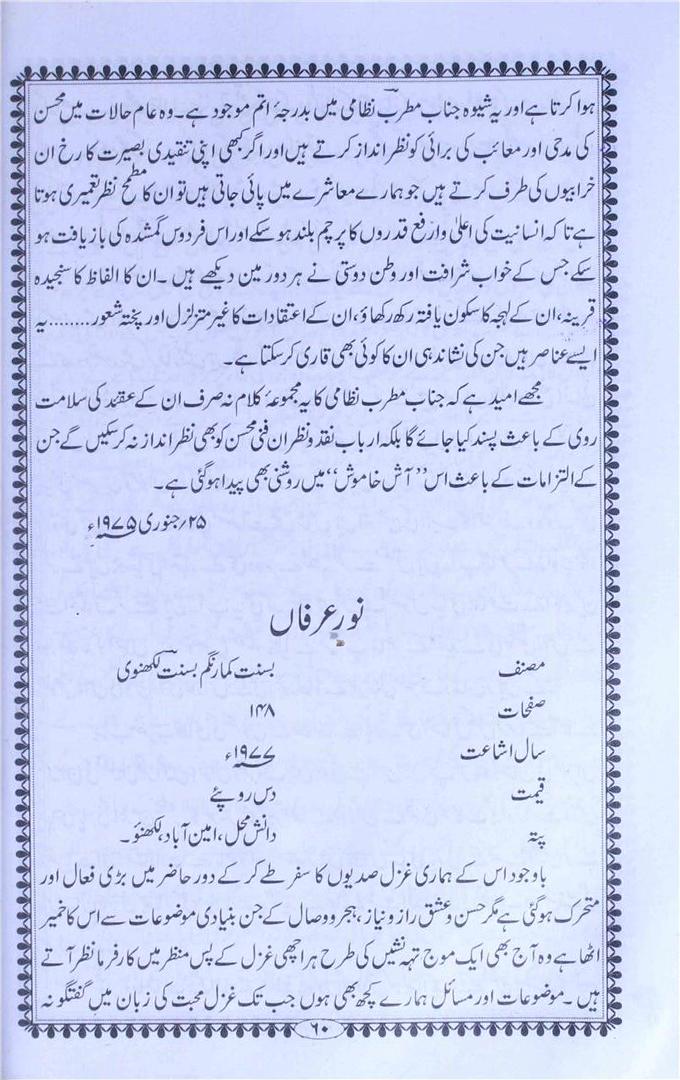 ہوا کرتا ہے اور یہ شیوہ جناب مطرب نظامی میں بدرجۂ اتم موجود ہے۔ وہ عام حالات میں محسن
کی مدحی اور معائب کی برائی کو نظر انداز کرتے ہیں اور اگر کبھی اپنی تنقیدی بصیرت کا رخ ان
خرابیوں کی طرف کرتے ہیں جو ہمارے معاشرے میں پائی جاتی ہیں تو ان کا مطمح نظر تعمیری ہوتا
ہے تاکہ انسانیت کی اعلیٰ وارفع قدروں کا پرچم بلند ہو سکے اور اس فردوس گمشدہ کی بازیافت ہو
سکے جس کے خواب شرافت اور وطن دوستی نے ہر دور مین دیکھے ہیں۔ ان کا الفاظ کا سنجیدہ
قرینہ، ان کے لہجہ کا سکون یافتہ رکھ رکھاؤ، ان کے اعتقادات کا غیر متزلزل اور پختہ شعور........ یہ
ایسے عناصر ہیں جن کی نشاندہی ان کا کوئی بھی قاری کر سکتا ہے۔
مجھے امید ہے کہ جناب مطرب نظامی کا یہ مجموعۂ کلام نہ صرف ان کے عقید کی سلامت
روی کے باعث پسند کیا جائے گا بلکہ ارباب نقد و نظر ان فنی محسن کو بھی نظر انداز نہ کر سکیں گے جن
کے التزامات کے باعث اس ’’آتش خاموش‘‘ میں روشنی بھی پیدا ہو گئی ہے۔
۲۵؍ جنوری ۱۹۷۵ء
نور عرفاں
مصنف بسنت کمار نگم بسنت لکھنوی
صفحات ۱۴۸
سال اشاعت ۱۹۷۷ء
قیمت دس روپئے
پتہ دانش محل، امین آباد، لکھنؤ۔
باوجود اس کے ہماری غزل صدیوں کا سفر طے کر کے دور حاضر میں بڑی فعال اور
متحرک ہو گئی ہے مگر حسن و عشق راز و نیاز، ہجر و وصال کے جن بنیادی موضوعات سے اس کا خمیر
اٹھا ہے وہ آج بھی ایک موج تہہ نشیں کی طرح ہر اچھی غزل کے پس منظر میں کارفرما نظر آتے
ہیں۔ موضوعات اور مسائل ہمارے کچھ بھی ہوں جب تک غزل محبت کی زبان میں گفتگو نہ
۶۰